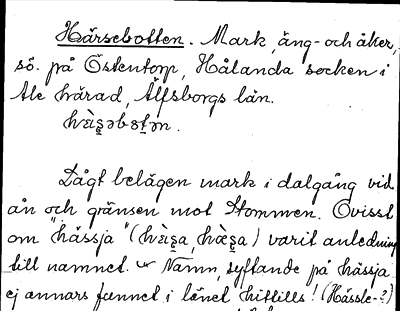 Härsebotten. Mark, äng- och åker,
sö. på Östentorp, Hålanda socken i
Ale härad, Älfsborgs län.
Lågt belägen mark i dalgång vid
ån och gränsen mot Stommen. Ovisst
om "hässja" ( ) varit anledning
till namnet. Namn, syftande på hässja
ej annars funnet i länet hittills! (Hässle-?)